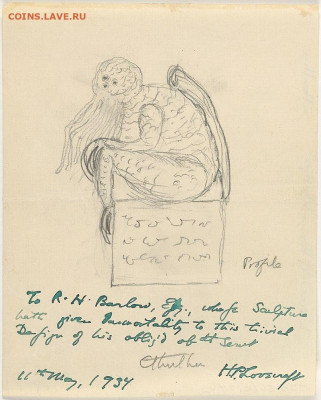 COINS.LAVE.RU
Profile
To R. H. Barlow, Esq., whose Sculpture
hath given Immortality to this trivial
Design of his oblig'd obt Servt
Cthulhu
HPLovecraft
11th May, 1934